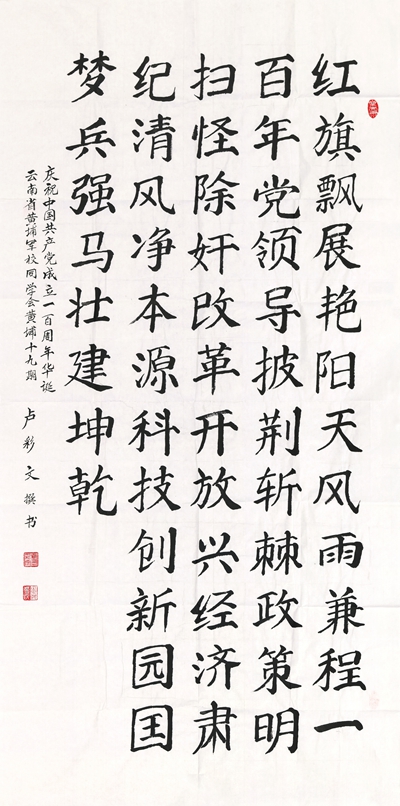 红旗飘展艳阳天风雨兼程一
百年党领导披荆斩棘政策明
扫怪除奸改革开放兴经济肃
纪清风净本源科技创新园囯
梦兵强马壮建坤乾
庆祝中国共产党成立一百周年华诞
云南省黄埔军校同学会黄埔十九期 卢彩文撰书